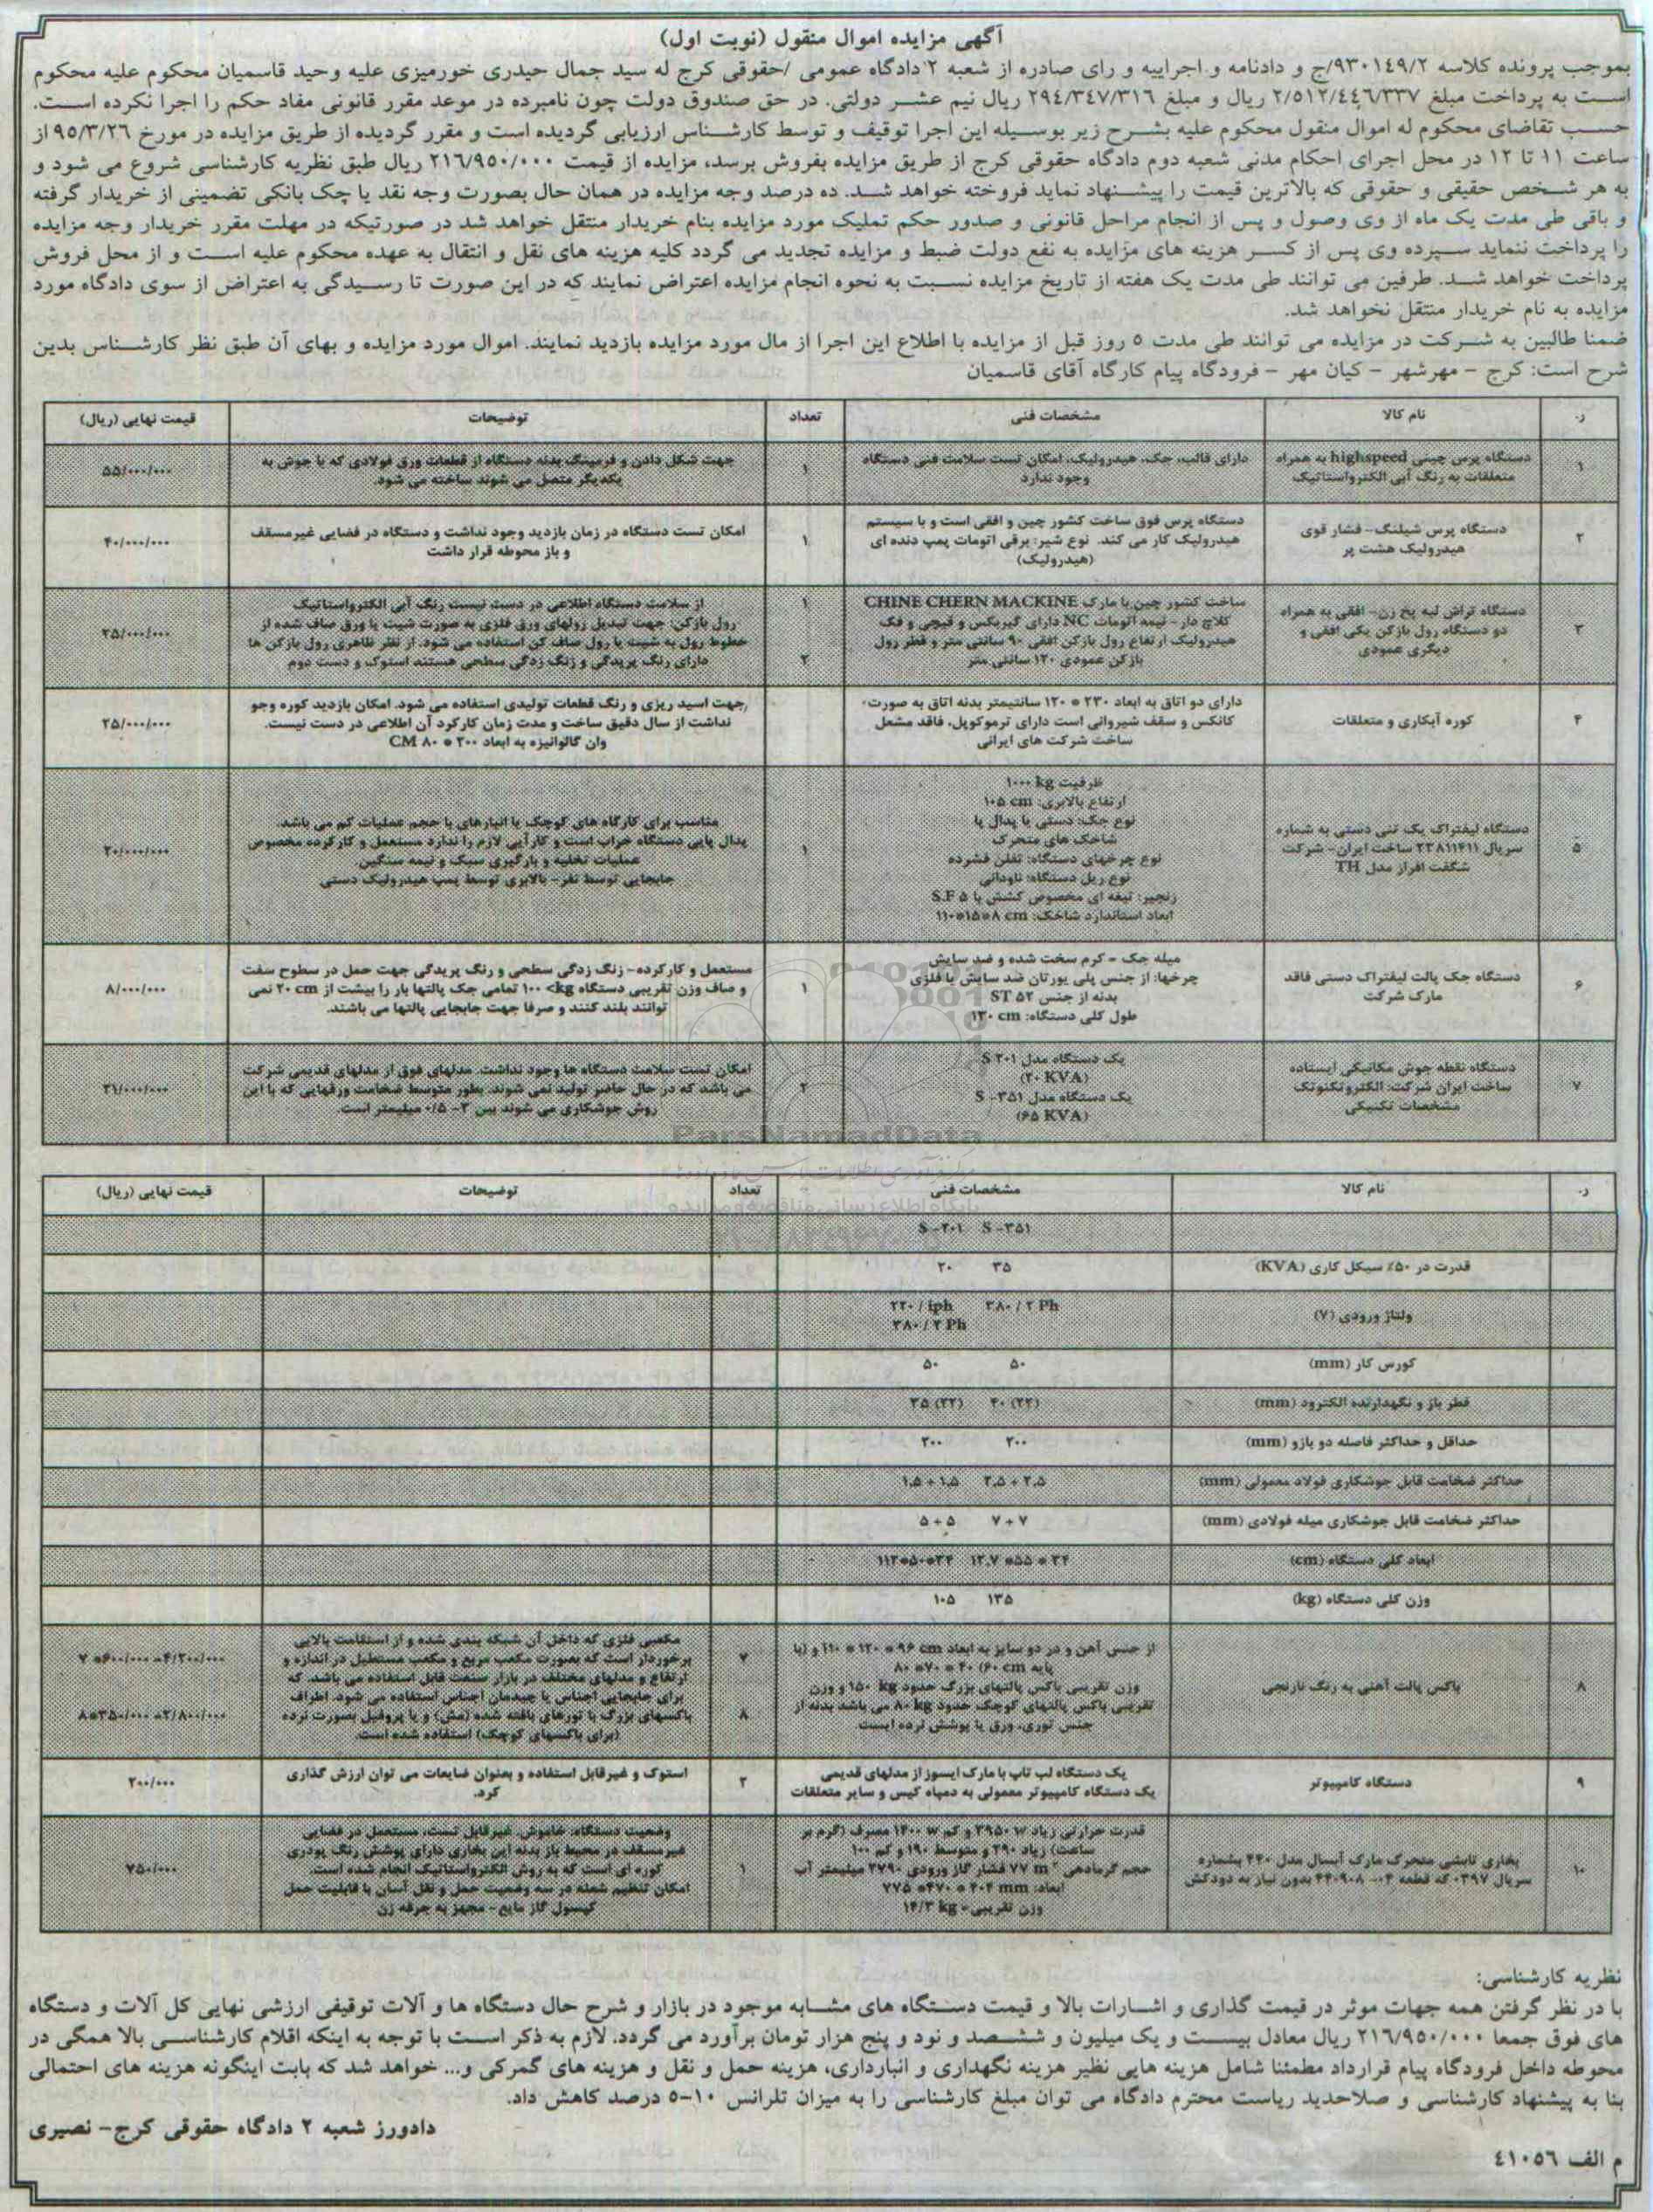 آگهی مزایده اموال منقول (نوبت اول)
بموجب پرونده کلاسه ۹۳۰۱٤۹/۲/ج و دادنامه و اجراییه و رای صادره از شعبه ۲ دادگاه عمومی /حقوقی کرج له سید جمال حیدری خورمیزی علیه وحید قاسمیان محکوم علیه محکوم
است به پرداخت مبلغ ۲/۵۱۲/٤٤٦/۳۳۷ ریال و مبلغ ۲۹٤/۳٤۷/۳۱٦ ریال نیم عشر دولتی. در حق صندوق دولت چون نامبرده در موعد مقرر قانونی مفاد حکم را اجرا نکرده است.
حسب تقاضای محکوم له اموال منقول محکوم علیه بشرح زیر بوسیله این اجرا توقیف و توسط کارشناس ارزیابی گردیده است و مقرر گردیده از طریق مزایده در مورخ ۹۵/۳/۲٦ از
ساعت ۱۱ تا ۱۲ در محل اجرای احکام مدنی شعبه دوم دادگاه حقوقی کرج از طریق مزایده بفروش برسد، مزایده از قیمت ۲۱٦/۹۵۰/۰۰۰ ریال طبق نظریه کارشناسی شروع می شود و
به هر شخص حقیقی و حقوقی که بالاترین قیمت را پیشنهاد نماید فروخته خواهد شد. ده درصد وجه مزایده در همان حال بصورت وجه نقد یا چک بانکی تضمینی از خریدار گرفته
و باقی طی مدت یک ماه از وی وصول و پس از انجام مراحل قانونی و صدور حکم تملیک مورد مزایده بنام خریدار منتقل خواهد شد در صورتیکه در مهلت مقرر خریدار وجه مزایده
را پرداخت ننماید سپرده وی پس از کسر هزینه های مزایده به نفع دولت ضبط و مزایده تجدید می گردد کلیه هزینه های نقل و انتقال به عهده محکوم علیه است و از محل فروش
پرداخت خواهد شد. طرفین می توانند طی مدت یک هفته از تاریخ مزایده نسبت به نحوه انجام مزایده اعتراض نمایند که در این صورت تا رسیدگی به اعتراض از سوی دادگاه مورد
مزایده به نام خریدار منتقل نخواهد شد.
ضمنا طالبین به شرکت در مزایده می توانند طی مدت ۵ روز قبل از مزایده با اطلاع این اجرا از مال مورد مزایده بازدید نمایند. اموال مورد مزایده و بهای آن طبق نظر کارشناس بدین
شرح است: کرج - مهرشهر - کیان مهر - فرودگاه پیام کارگاه آقای قاسمیان
ر. نام کالا مشخصات فنی تعداد توضیحات قیمت نهایی (ریال)
۱ دستگاه پرس چینی highspeed به همراه
متعلقات به رنگ آبی الکترواستاتیک
دارای قالب، جک، هیدرولیک، امکان تست سلامت فنی دستگاه
وجود ندارد
جهت شکل دادن و فرمینگ بدنه دستگاه از قطعات ورق فولادی که با جوش به
یکدیگر متصل می شوند ساخته می شود.
۵۵/۰۰۰/۰۰۰
۲ دستگاه پرس شیلنگ- فشار قوی
هیدرولیک هشت پر
دستگاه پرس فوق ساخت کشور چین و افقی است و با سیستم
هیدرولیک کار می کند. نوع شیر: برقی اتومات پمپ دنده ای
(هیدرولیک)
۱
امکان تست دستگاه در زمان بازدید وجود نداشت و دستگاه در فضایی غیرمسقف
و باز محوطه قرار داشت
۴۰/۰۰۰/۰۰۰
۳ دستگاه تراش لبه پخ زن- افقی به همراه
دو دستگاه رول بازکن یکی افقی و
دیگری عمودی
ساخت کشور چین با مارک CHINE CHERN MACKINE
کلاچ دار - نیمه اتومات NC دارای گیربکس و قیچی و فک
هیدرولیک ارتفاع رول بازکن افقی ۹۰ سانتی متر و قطر رول
بازکن عمودی ۱۲۰ سانتی متر
۱
۲
از سلامت دستگاه اطلاعی در دست نیست رنگ آبی الکترواستاتیک
رول بازکن: جهت تبدیل رولهای ورق فلزی به صورت شیت یا ورق صاف شده از
خطوط رول به شیت یا رول صاف کن استفاده می شود. از نظر ظاهری رول بازکن ها
دارای رنگ پریدگی و زنگ زدگی سطحی هستند استوک و دست دوم
۲۵/۰۰۰/۰۰۰
۴ کوره آبکاری و متعلقات
دارای دو اتاق به ابعاد ۲۳۰ * ۱۲۰ سانتیمتر بدنه اتاق به صورت
کانکس و سقف شیروانی است دارای ترموکوپل، فاقد مشعل
ساخت شرکت های ایرانی
جهت اسید ریزی و رنگ قطعات تولیدی استفاده می شود. امکان بازدید کوره وجو
نداشت از سال دقیق ساخت و مدت زمان کارکرد آن اطلاعی در دست نیست.
وان گالوانیزه به ابعاد ۲۰۰ * ۸۰ CM
۲۵/۰۰۰/۰۰۰
۵ دستگاه لیفتراک یک تنی دستی به شماره
سریال ۲۳۸۱۱۴۱۱ ساخت ایران- شرکت
شگفت افراز مدل TH
ظرفیت ۱۰۰۰ kg
ارتفاع بالابری: ۱۰۵ cm
نوع جک: دستی با پدال پا
شاخک های متحرک
نوع چرخهای دستگاه: تفلن فشرده
نوع ریل دستگاه: ناودانی
زنجیر: تیغه ای مخصوص کشش با S.F ۵
ابعاد استاندارد شاخک: ۱۱۰*۱۵*۸ cm
۱
مناسب برای کارگاه های کوچک یا انبارهای با حجم عملیات کم می باشد.
پدال پایی دستگاه خراب است و کارآیی لازم را ندارد مستعمل و کارکرده مخصوص
عملیات تخلیه و بارگیری سبک و نیمه سنگین
جابجایی توسط نفر- بالابری توسط پمپ هیدرولیک دستی
۲۰/۰۰۰/۰۰۰
۶ دستگاه جک پالت لیفتراک دستی فاقد
مارک شرکت
میله جک - کرم سخت شده و ضد سایش
چرخها: از جنس پلی یورتان ضد سایش یا فلزی
بدنه از جنس ST ۵۲
طول کلی دستگاه: ۱۲۰ cm
۱
مستعمل و کارکرده- زنگ زدگی سطحی و رنگ پریدگی جهت حمل در سطوح سفت
و صاف وزن تقریبی دستگاه ۱۰۰ <kg تمامی جک پالتها بار را بیشت از ۲۰ cm نمی
توانند بلند کنند و صرفا جهت جابجایی پالتها می باشند.
۸/۰۰۰/۰۰۰
۷ دستگاه نقطه جوش مکانیکی ایستاده
ساخت ایران شرکت: الکتروتکنوتک
مشخصات تکنیکی
یک دستگاه مدل S ۲۰۱
(۲۰ KVA)
یک دستگاه مدل S -۳۵۱
۲
امکان تست سلامت دستگاه ها وجود نداشت. مدلهای فوق از مدلهای قدیمی شرکت
می باشد که در حال حاضر تولید نمی شوند. بطور متوسط ضخامت ورقهایی که با این
روش جوشکاری می شوند بین ۳- ۰/۵ میلیمتر است.
۲۱/۰۰۰/۰۰۰
ParsNamadData
ر. نام کالا مشخصات فنی تعداد توضیحات قیمت نهایی (ریال)
S -۳۵۱ S -۲۰۱
قدرت در ۵۰٪ سیکل کاری (KVA) ۳۵ ۲۰
ولتاژ ورودی (۷) ۳۸۰ / ۲ Ph ۲۲۰ / iph
۳۸۰ / ۲ Ph
کورس کار (mm) ۵۰ ۵۰
قطر باز و نگهدارنده الکترود (mm) ۴۰ (۲۲) ۳۵ (۲۲)
حداقل و حداکثر فاصله دو بازو (mm) ۲۰۰ ۲۰۰
حداکثر ضخامت قابل جوشکاری فولاد معمولی (mm) ۲،۵ + ۲،۵ ۱،۵ + ۱،۵
حداکثر ضخامت قابل جوشکاری میله فولادی (mm) ۷ + ۷ ۵ + ۵
ابعاد کلی دستگاه (cm) ۱۲،۷ *۵۵ * ۲۴ ۱۱۲*۵۰*۲۴
وزن کلی دستگاه (kg) ۱۳۵ ۱۰۵
۸ باکس پالت آهنی به رنگ نارنجی
از جنس آهن و در دو سایز به ابعاد ۹۶ cm * ۱۲۰ * ۱۱۰ و (با
پایه ۶۰ cm) ۴۰ * ۷۰* ۸۰
وزن تقریبی باکس پالتهای بزرگ حدود ۱۵۰ kg و وزن
تقریبی باکس پالتهای کوچک حدود ۸۰ kg می باشد بدنه از
جنس توری، ورق یا پوشش نرده است.
۷
۸
مکعبی فلزی که داخل آن شبکه بندی شده و از استقامت بالایی
برخوردار است که بصورت مکعب مربع و مکعب مستطیل در اندازه و
ارتفاع و مدلهای مختلف در بازار صنعت قابل استفاده می باشد. که
برای جابجایی اجناس یا چیدمان اجناس استفاده می شود. اطراف
باکسهای بزرگ با تورهای بافته شده (مش) و یا پروفیل بصورت نرده
(برای باکسهای کوچک) استفاده شده است.
۷ *۶۰۰/۰۰۰ =۴/۲۰۰/۰۰۰
۸*۳۵۰/۰۰۰ =۲/۸۰۰/۰۰۰
۹ دستگاه کامپیوتر
یک دستگاه لپ تاپ با مارک ایسوز از مدلهای قدیمی
یک دستگاه کامپیوتر معمولی به دمپاه کیس و سایر متعلقات
۲
استوک و غیرقابل استفاده و بعنوان ضایعات می توان ارزش گذاری
کرد.
۲۰۰/۰۰۰
۱۰ بخاری تابشی متحرک مارک آبسال مدل ۴۴۰ بشماره
سریال ۰۳۹۷ کد قطعه ۰۴- ۴۴۰۹۰۸ بدون نیاز به دودکش
قدرت حرارتی زیاد ۳۹۵۰ w و کم ۱۴۰۰ w مصرف (گرم بر
ساعت) زیاد ۲۹۰ و متوسط ۱۹۰ و کم ۱۰۰
حجم گرمادهی ۷۷ m³ فشار گاز ورودی ۲۷۹۰ میلیمتر آب
ابعاد: ۴۰۴ mm * ۴۷۰* ۷۷۵
وزن تقریبی= ۱۴/۳ kg
۱
وضعیت دستگاه: خاموش، غیرقابل تست، مستعمل در فضایی
غیرمسقف در محیط باز بدنه این بخاری دارای پوشش رنگ پودری
کوره ای است که به روش الکترواستاتیک انجام شده است.
امکان تنظیم شعله در سه وضعیت حمل و نقل آسان با قابلیت حمل
کپسول گاز مایع- مجهز به جرقه زن
۷۵۰/۰۰۰
نظریه کارشناسی:
با در نظر گرفتن همه جهات موثر در قیمت گذاری و اشارات بالا و قیمت دستگاه های مشابه موجود در بازار و شرح حال دستگاه ها و آلات توقیفی ارزشی نهایی کل آلات و دستگاه
های فوق جمعا ۲۱٦/۹۵۰/۰۰۰ ریال معادل بیست و یک میلیون و ششصد و نود و پنج هزار تومان برآورد می گردد. لازم به ذکر است با توجه به اینکه اقلام کارشناسی بالا همگی در
محوطه داخل فرودگاه پیام قرارداد مطمئنا شامل هزینه هایی نظیر هزینه نگهداری و انبارداری، هزینه حمل و نقل و هزینه های گمرکی و... خواهد شد که بابت اینگونه هزینه های احتمالی
بنا به پیشنهاد کارشناسی و صلاحدید ریاست محترم دادگاه می توان مبلغ کارشناسی را به میزان تلرانس ۱۰-۵ درصد کاهش داد.
دادورز شعبه ۲ دادگاه حقوقی کرج- نصیری
م الف ٤۱۰۵٦